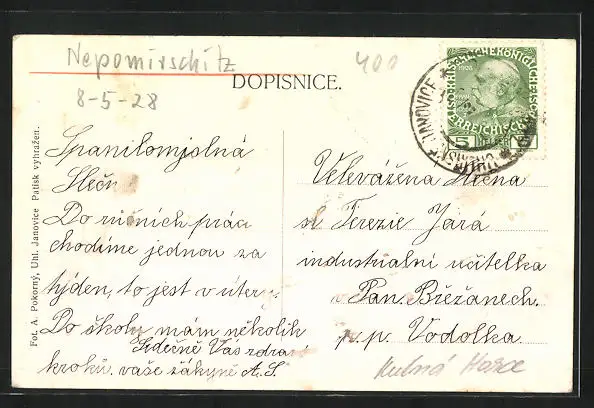 Nepomirschitz
8-5-28
400
DOPISNICE.
Spanilomyslná
Slečn
Do ručních prác
chodíme jednou za
týden, to jest v úter
Do školy mám několik
Srdečně Vás zdraví
kroků. vaše žákyně A. S.
Velevážena Slečna
sl Terezie Jará
industrialní učitelka
v Pan. Břežanech.
p. p. Vodolka.
Kutná Hora
Fot. A. Pokorný, Uhl. Janovice Patisk vyhražen.
JANOVICE
5